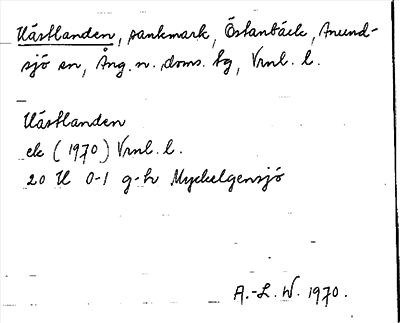 Västlanden, sankmark, Östanbäck, Anund-
sjö sn, Ång. n. doms. tg, Vrnl. l.
Västlanden
ek (1970) Vrnl. l.
20 H 0-1 g-h Myckelgensjö
A.-L. W. 1970.